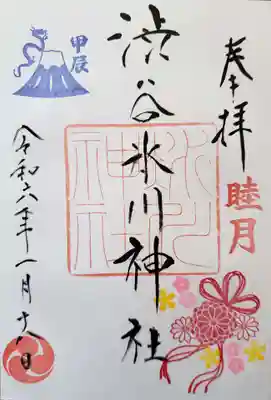 奉拝
睦月
渋谷氷川神社
甲辰
令和六年一月十八日